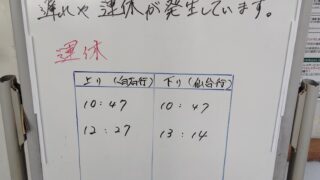 遅れや運休が発生しています。
運休
上り(白石行) 下り(仙台行)
10:47 10:47
12:27 13:14